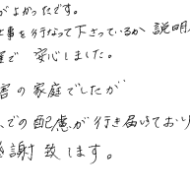 がよかったです。
事を行なって下さっているか 説明
で 安心しました。
害の家庭でしたが
での配慮が行き届いており
謝致します。